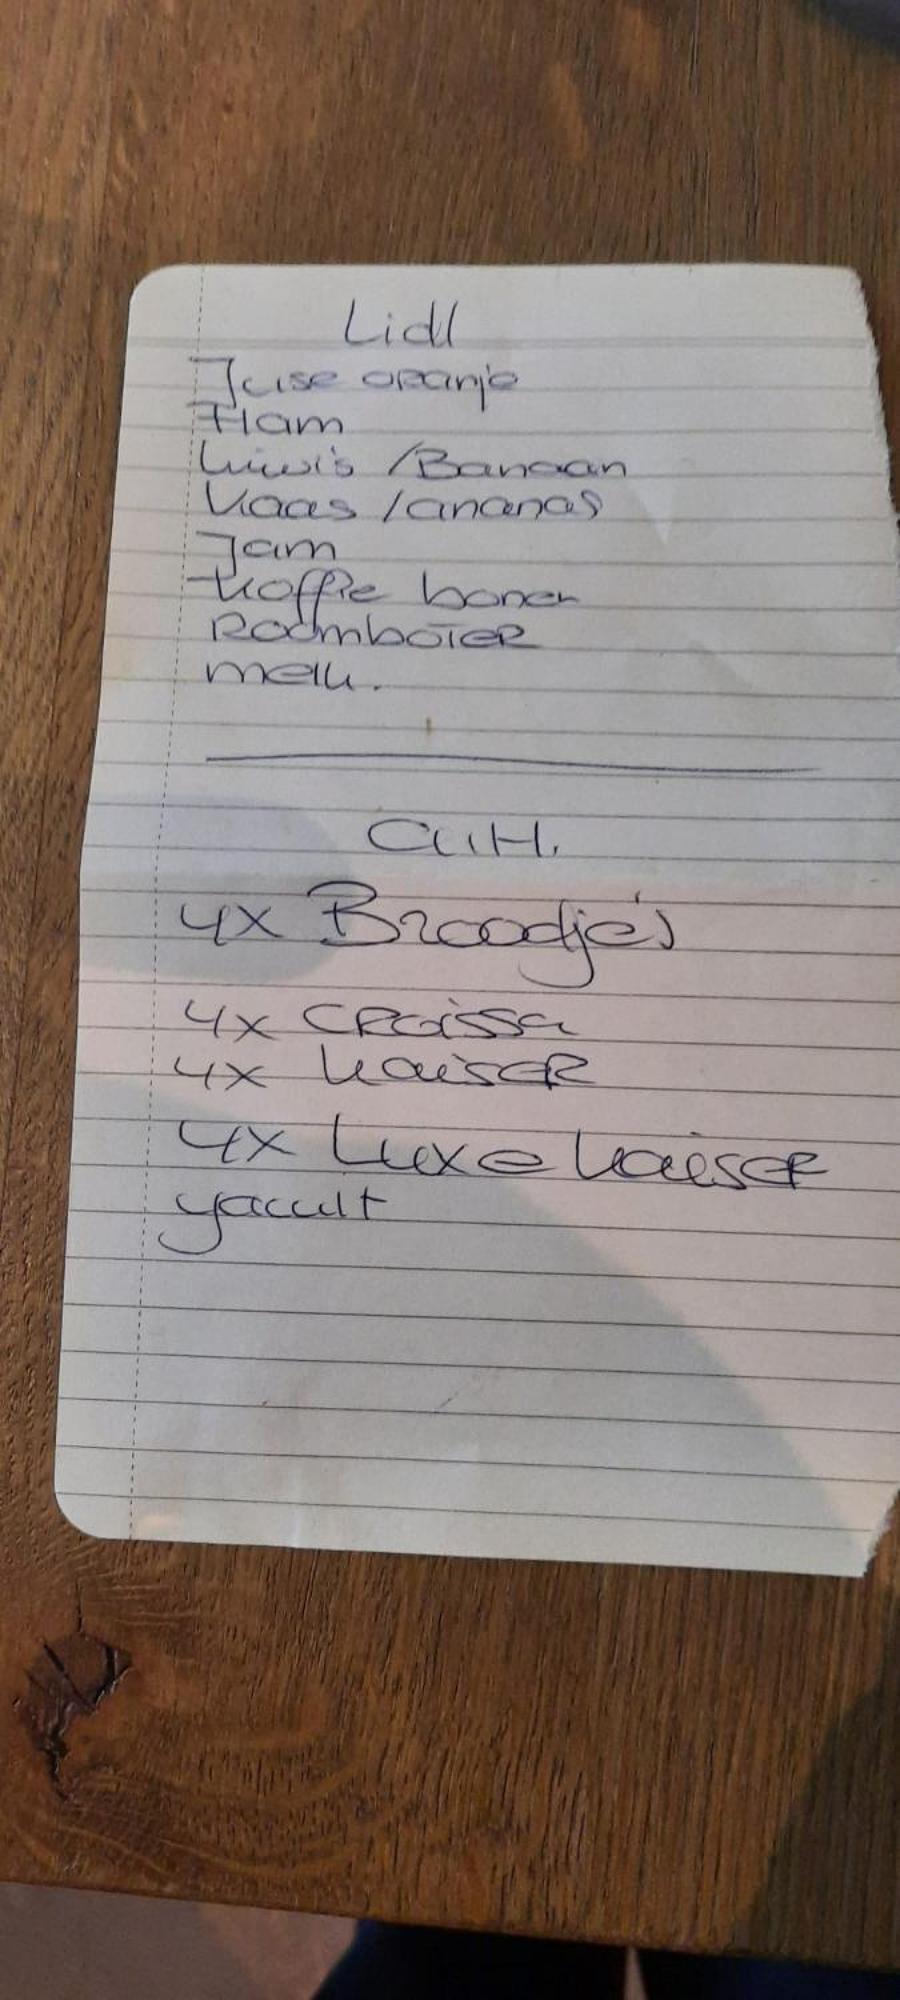 Lidl
Juse oranje
Ham
kiwi's / Banaan
Kaas / ananas
Jam
Koffie bonen
Roomboter
melk.
4x Broodje's
4x CRoissa
4x kaiseR
4x Luxe kaiseR
yacult